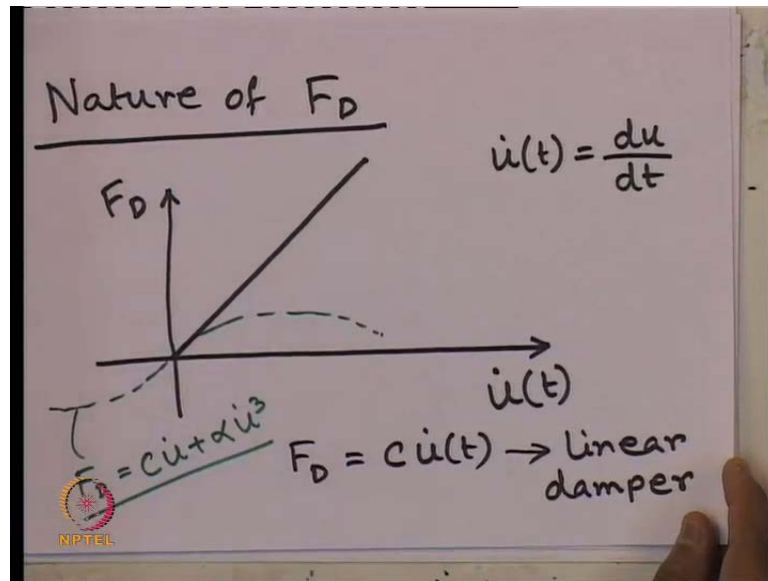 Nature of F_D
u̇(t) = du/dt
F_D
u̇(t)
F_D = cu̇ + αu̇³
F_D = c u̇(t) → linear
damper
NPTEL